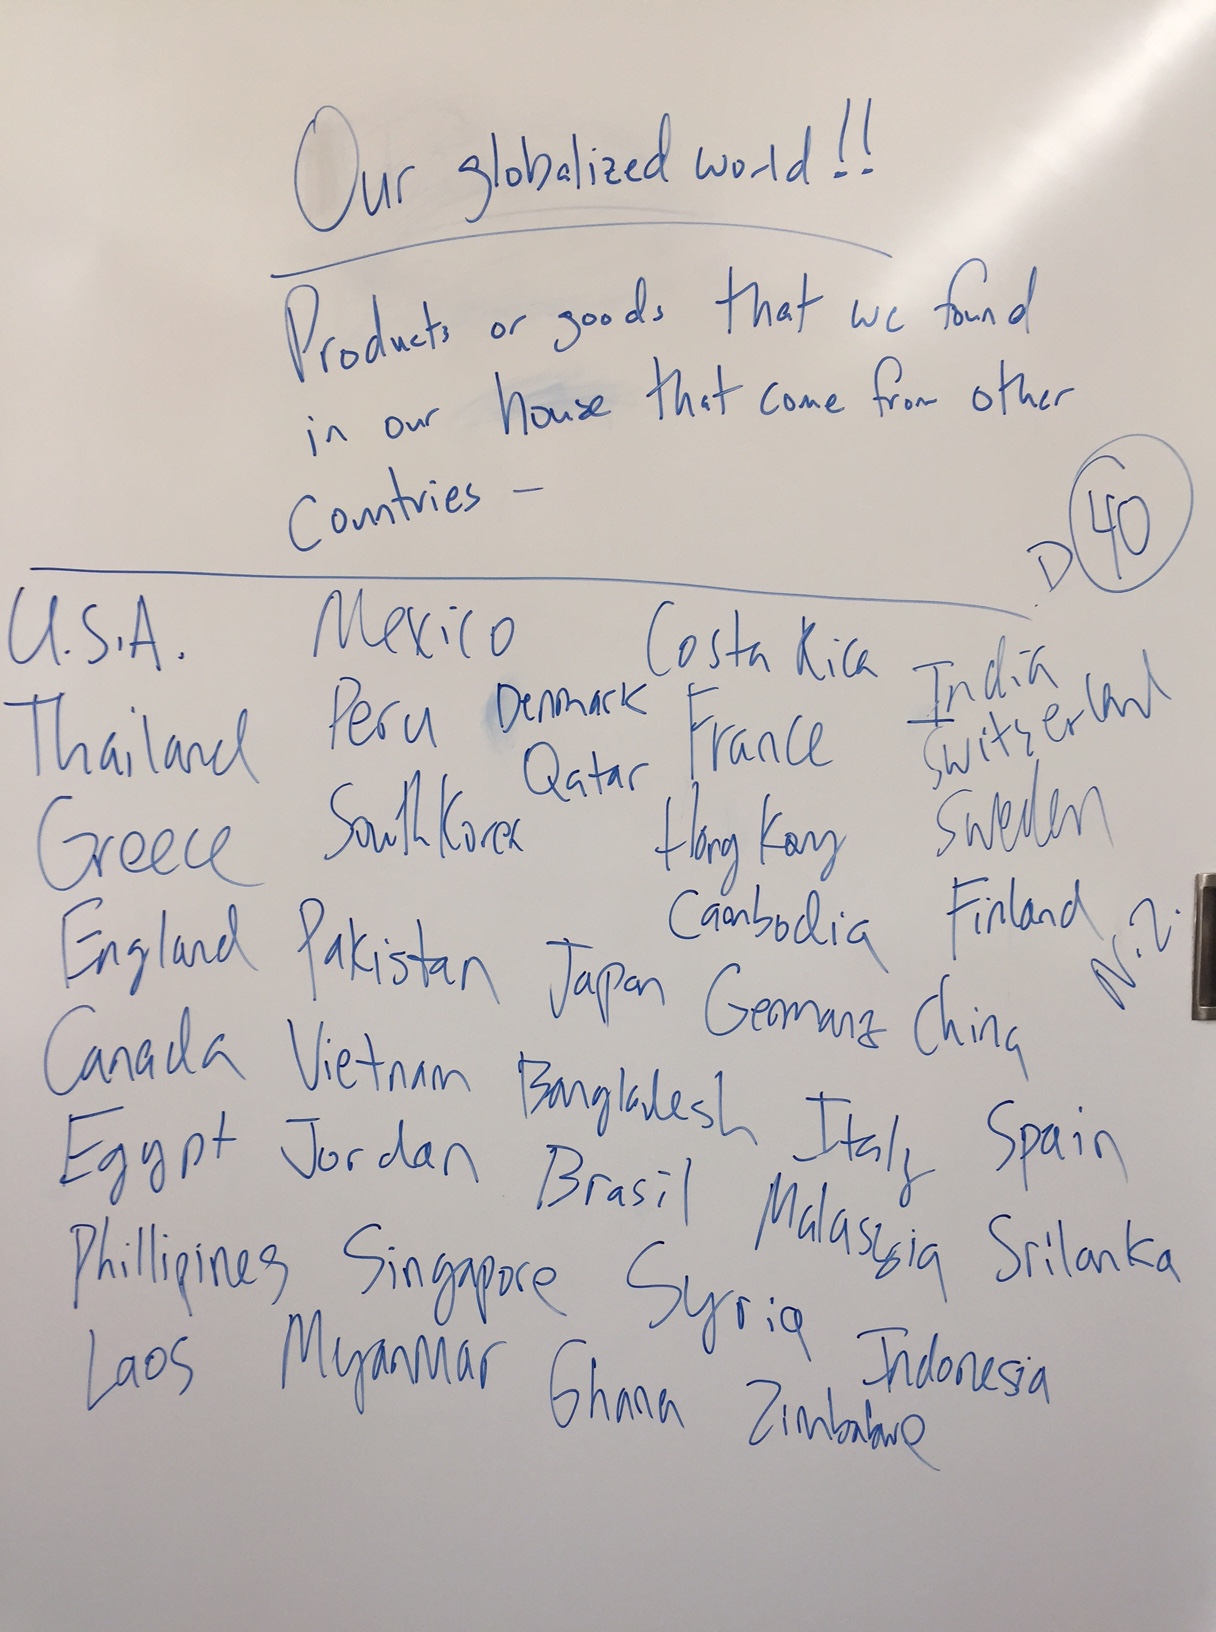 Our globalized world!!
Products or goods that we found
in our house that come from other
Countries -
D 40
U.S.A. Mexico Costa Rica India
Thailand Peru Denmark France Switzerland
Qatar
Greece South Korea Hong Kong Sweden
Cambodia Finland N.Z.
England Pakistan Japan Germany China
Canada Vietnam Bangladesh Italy Spain
Egypt Jordan Brasil Malaysia Srilanka
Phillipines Singapore Syria Indonesia
Laos Myanmar Ghana Zimbabwe